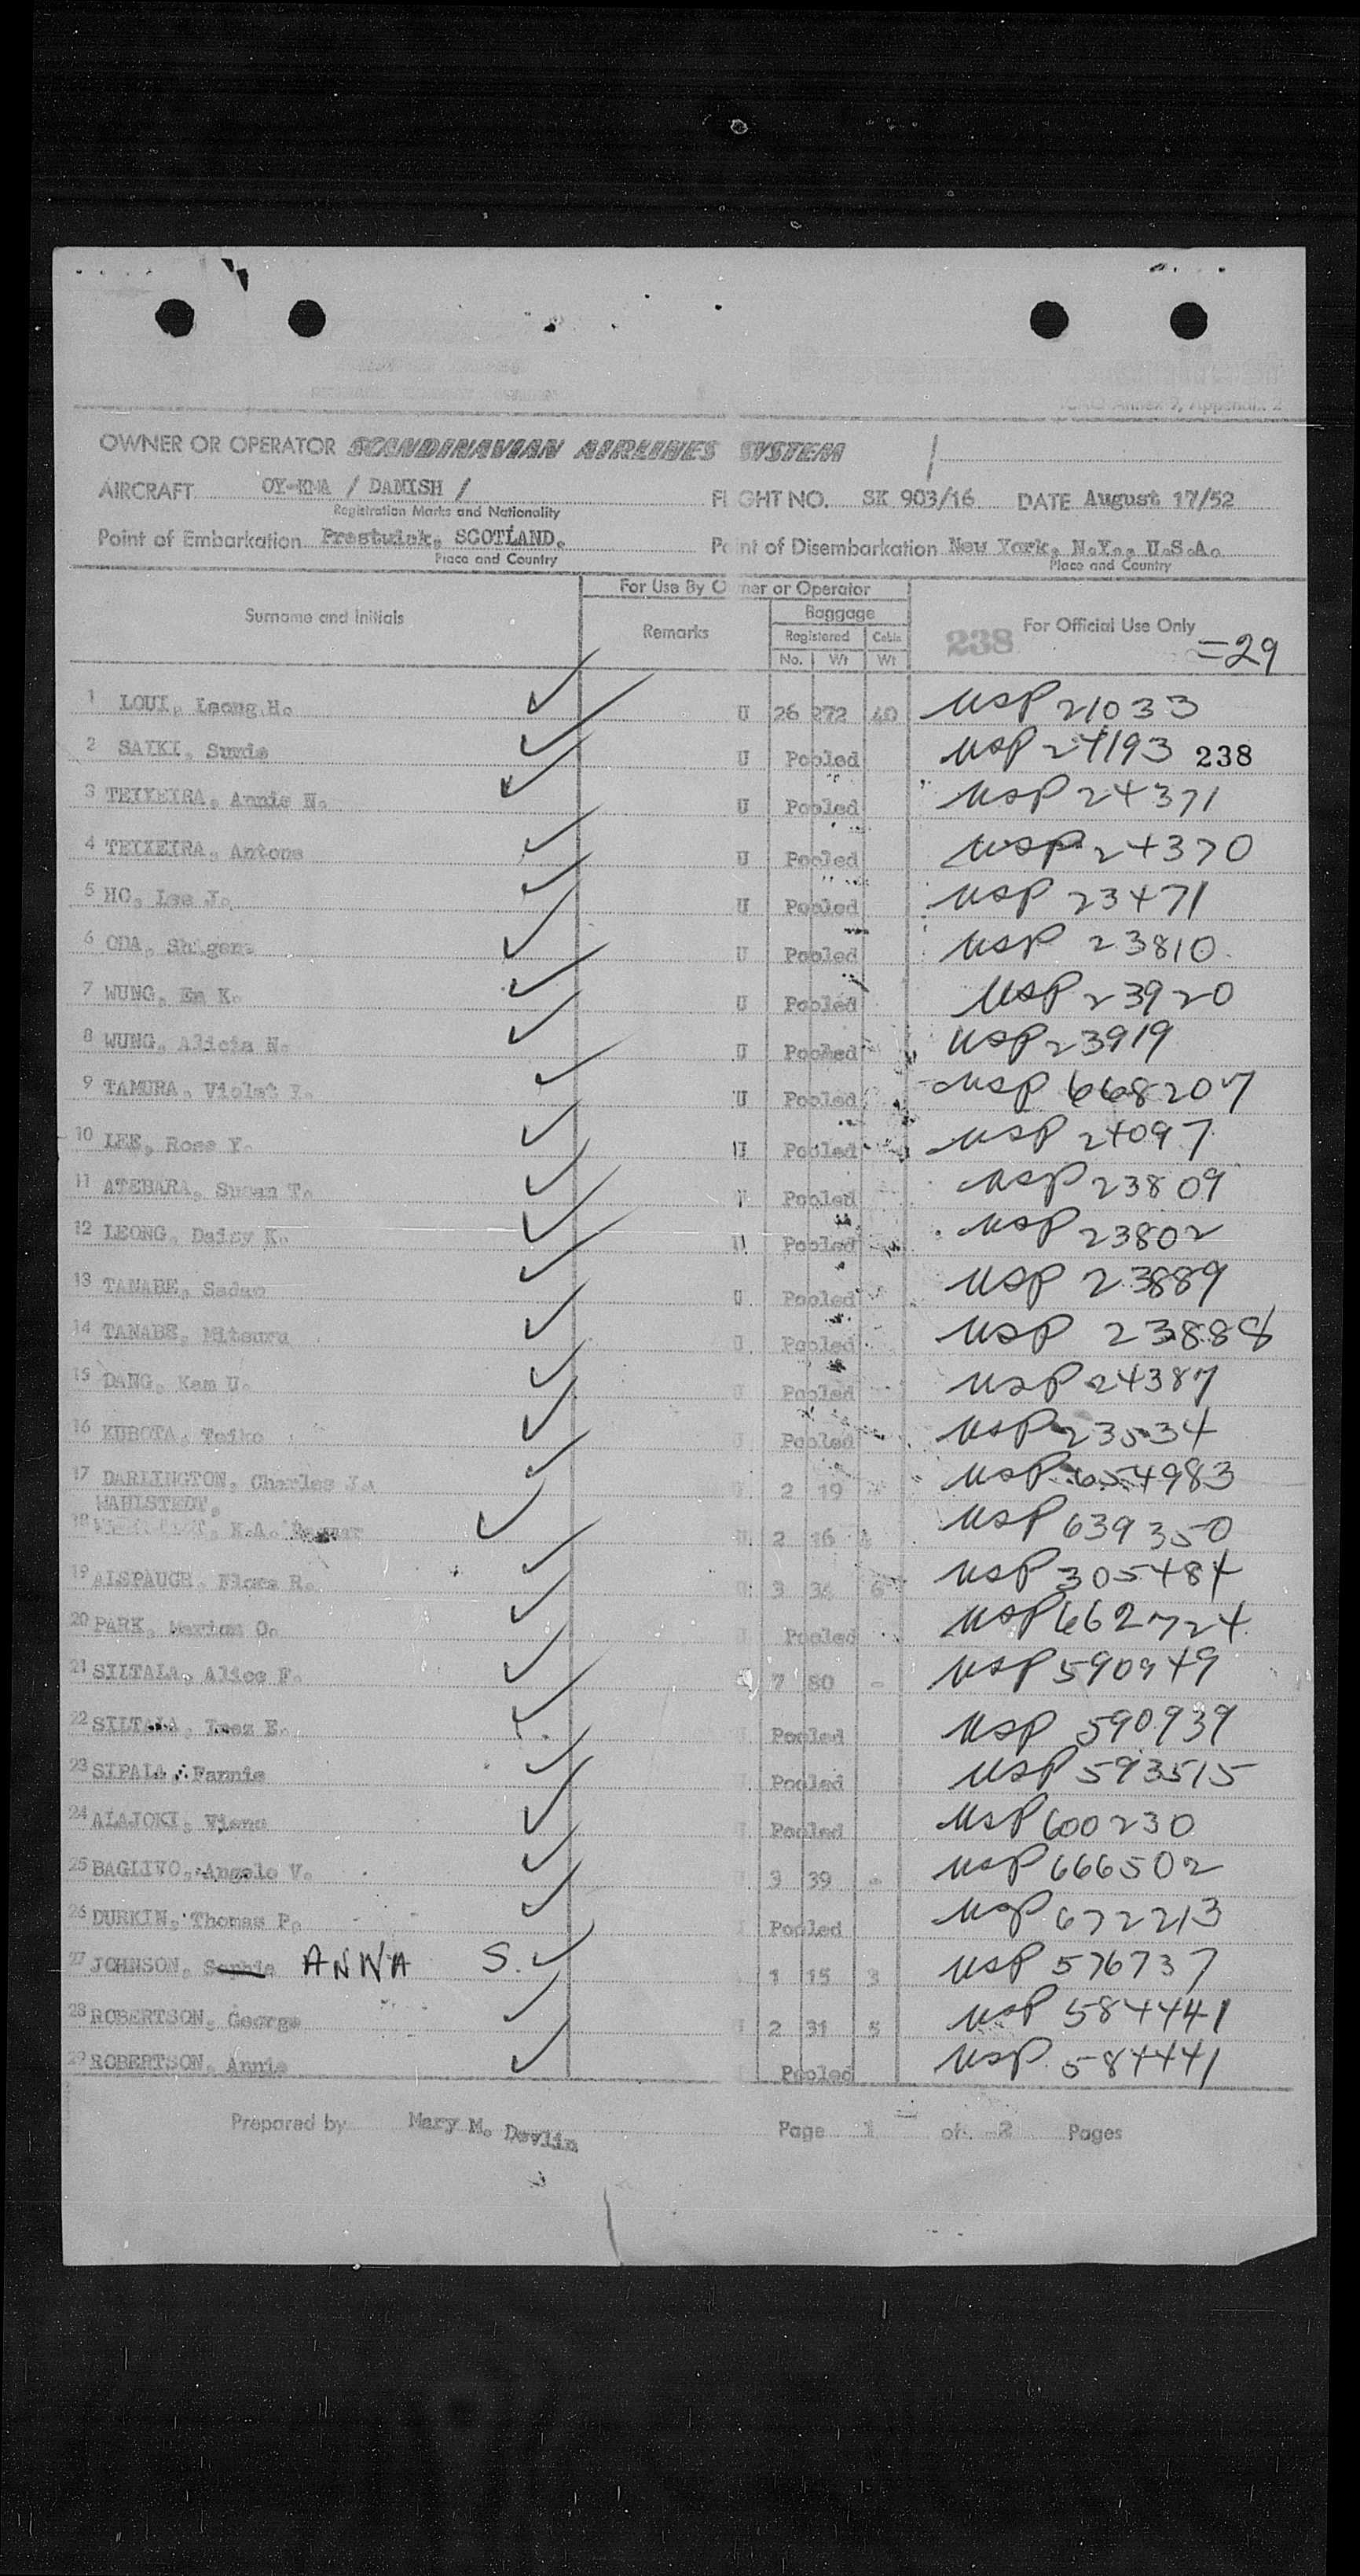 ICAO Annex 9, Appendix 2
OWNER OR OPERATOR SCANDINAVIAN AIRLINES SYSTEM
AIRCRAFT OY-KMA / DANISH / FLIGHT NO. SK 903/16 DATE August 17/52
Registration Marks and Nationality
Point of Embarkation Prestwick, SCOTLAND. Point of Disembarkation New York, N.Y., U.S.A.
Place and Country Place and Country
For Use By Owner or Operator
Surname and Initials Remarks Baggage For Official Use Only
Registered Cabin 238 =29
No. Wt Wt
1 LOUI, Leong H. U 26 272 40 USP 21033
2 SAIKI, Sumie U Pooled USP 24193 238
3 TEIXEIRA, Annie N. U Pooled USP 24371
4 TEIXEIRA, Antone U Pooled USP 24370
5 HO, Lee J. U Pooled USP 23471
6 ODA, Shigeru U Pooled USP 23810
7 WUNG, En K. U Pooled USP 23920
8 WUNG, Alicia N. U Pooled USP 23919
9 TAMURA, Violet Y. U Pooled USP 668207
10 LEE, Rose Y. U Pooled USP 24097
11 ATEBARA, Susan T. U Pooled USP 23809
12 LEONG, Daisy K. U Pooled USP 23802
13 TANABE, Sadao U Pooled USP 23889
14 TANABE, Mitsuru U Pooled USP 23888
15 DANG, Kam U. U Pooled USP 24387
16 KUBOTA, Teiko U Pooled USP 23534
17 DARLINGTON, Charles J. 2 19 USP 654983
WAHLSTEDT,
18 K.A. U 2 16 USP 639350
19 ALSPAUGH, Flora R. U 3 34 6 USP 305484
20 PARK, Marion O. U Pooled USP 662724
21 SILTALA, Alice F. 7 80 - USP 590949
22 SILTALA, Inez E. Pooled USP 590939
23 SIPALA, Fannie Pooled USP 593515
24 ALAJOKI, Vieno Pooled USP 600230
25 BAGLIVO, Angelo V. 3 39 - USP 666502
26 DURKIN, Thomas P. Pooled USP 672213
27 JOHNSON, Sophie ANNA S. 1 15 3 USP 576737
28 ROBERTSON, George 2 31 5 USP 584441
29 ROBERTSON, Annie Pooled USP 584441
Prepared by Mary M. Devlin Page 1 of 2 Pages